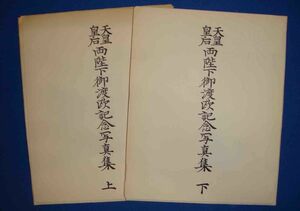 天皇皇后両陛下御渡欧記念写真集 下
天皇皇后両陛下御渡欧記念写真集 上